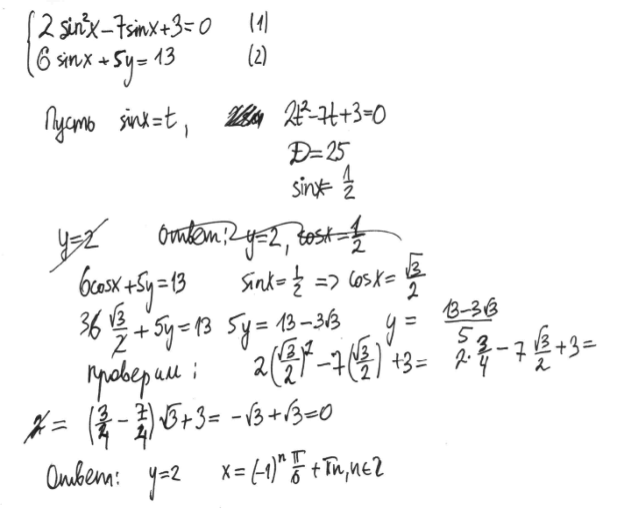 { 2 sin²x − 7sinx + 3 = 0 (1)
6 sinx + 5y = 13 (2)
Пусть sinx = t, 2t² − 7t + 3 = 0
D = 25
sinx = 1/2
y = 2 Ответ: y = 2, cosx = 1/2
6cosx + 5y = 13 sinx = 1/2 => cosx = √3/2
36 √3/2 + 5y = 13 5y = 13 − 3√3 y = (13 − 3√3)/5
проверим: 2(√3/2)² − 7(√3/2) + 3 = 2·3/4 − 7 √3/2 + 3 =
= (3/4 − 7/4)√3 + 3 = −√3 + √3 = 0
Ответ: y = 2 x = (−1)ⁿ π/6 + πn, n∈Z